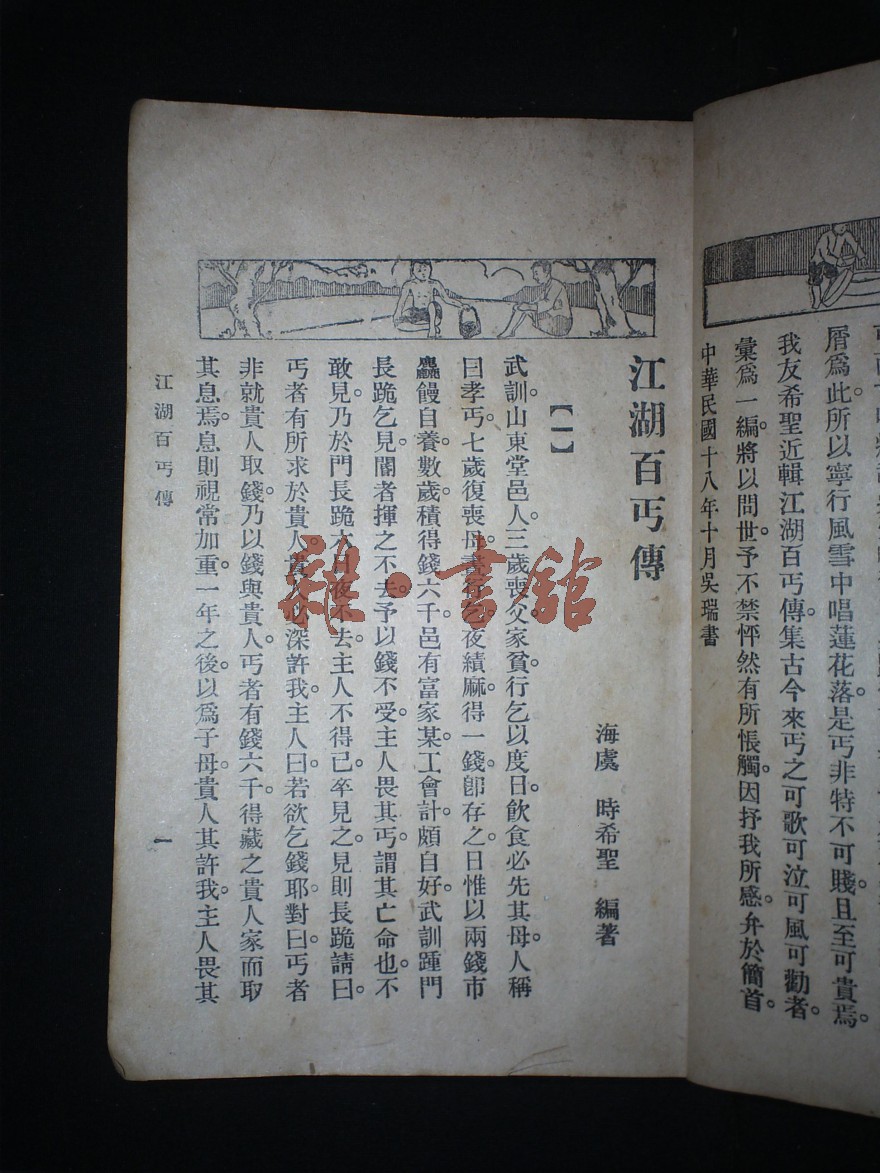 屑爲此。所以寧行風雪中唱蓮花落。是丐非特不可賤。且至可貴焉。
我友希聖近輯江湖百丐傳。集古今來丐之可歌可泣可風可勸者。
彙爲一編。將以問世。予不禁怦然有所悵觸。因抒我所感。弁於簡首。
中華民國十八年十月吳瑞書
江湖百丐傳
海虞 時希聖 編著
【一】
武訓。山東堂邑人。三歲喪父。家貧。行乞以度日。飲食必先其母。人稱
曰孝丐。七歲復喪母。晝行乞。夜績麻。得一錢。卽存之。日惟以兩錢市
麤饅自養。數歲。積得錢六千。邑有富家某。工會計。頗自好。武訓踵門
長跪乞見。閽者揮之不去。予以錢不受。主人畏其丐。謂其亡命也。不
敢見。乃於門長跪六日夜不去。主人不得已。卒見之。見則長跪請曰。
丐者有所求於貴人。貴人必深許我。主人曰。若欲乞錢耶。對曰。丐者
非就貴人取錢。乃以錢與貴人。丐者有錢六千。得藏之貴人家而取
其息焉。息則視常加重。一年之後。以爲子母。貴人其許我。主人畏其
江湖百丐傳
一
雜·書館